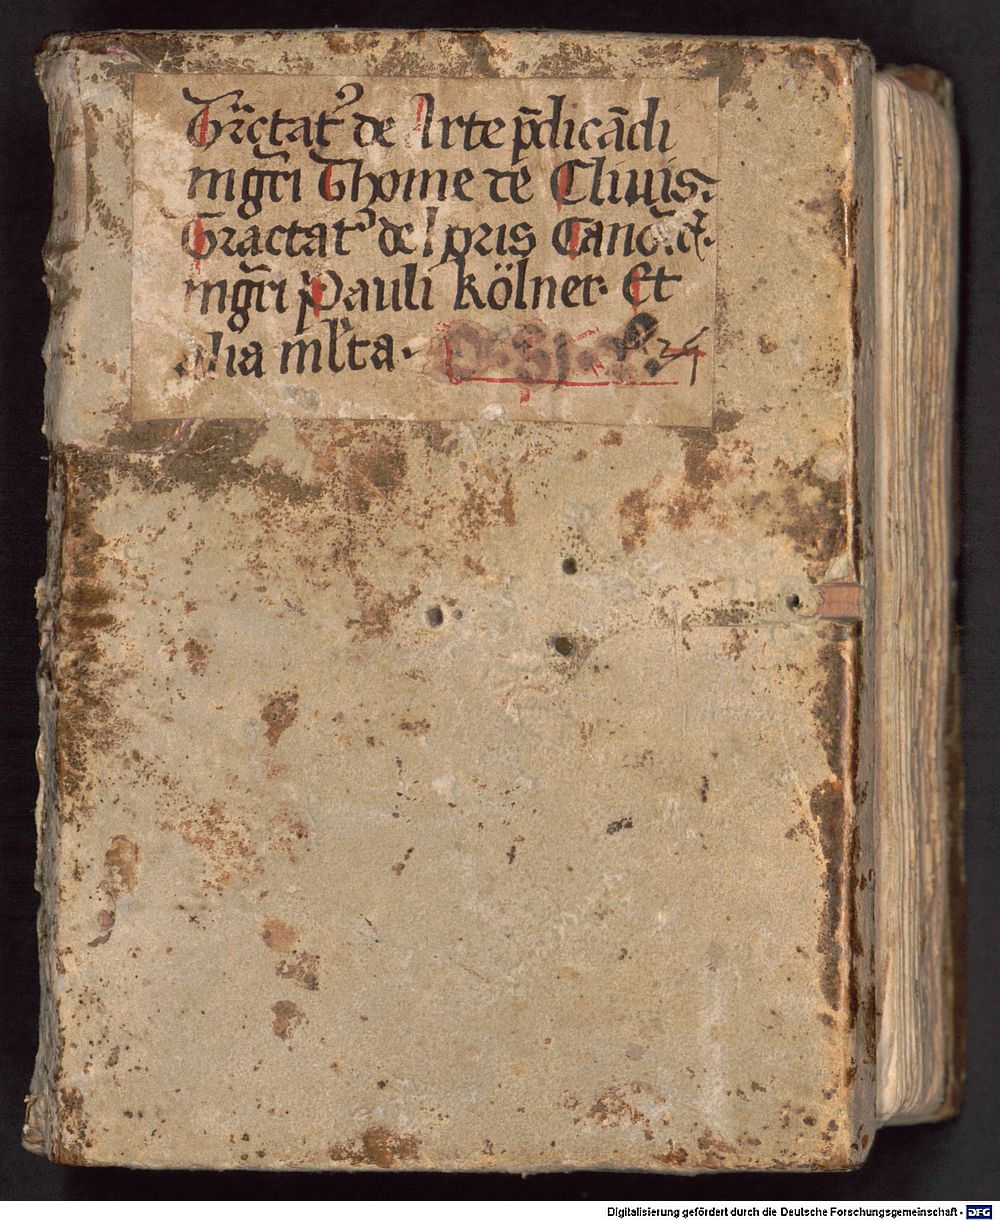 Tractatꝰ de Arte p̄dicādi
mgr̄i Thome de Clivis.
Tractatꝰ de
mgr̄i Pauli Kölner. Et
alia ml̄ta.
Digitalisierung gefördert durch die Deutsche Forschungsgemeinschaft - DFG